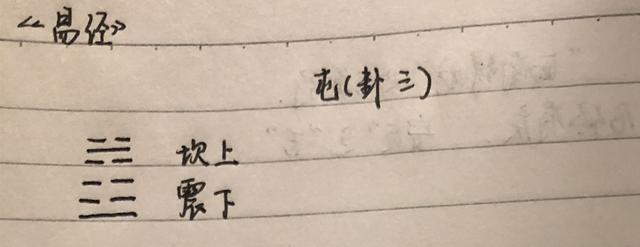 《易经》
屯(卦三)
坎上
震下